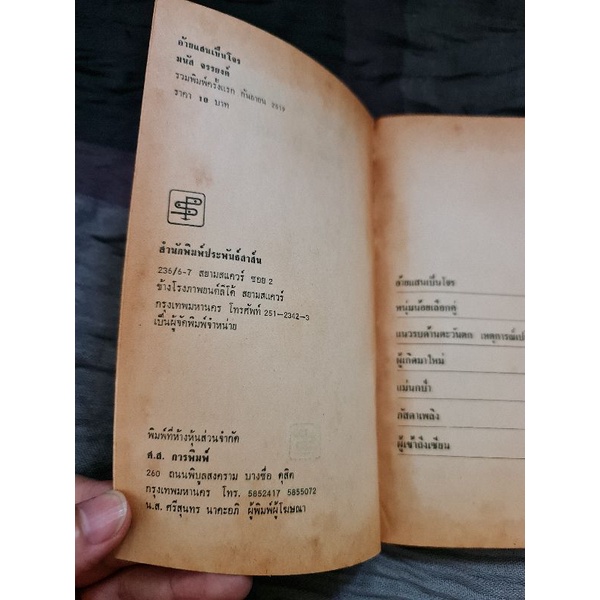 ถ้วยแสนเป็นโจร
มนัส จรรยงค์
รวมพิมพ์ครั้งแรก กันยายน 2519
ราคา 10 บาท
สำนักพิมพ์ประพันธ์สาส์น
236/6-7 สยามสแควร์ ซอย 2
ข้างโรงภาพยนต์ลิโด้ สยามสแควร์
กรุงเทพมหานคร โทรศัพท์ 251-2342-3
เป็นผู้จัดพิมพ์จำหน่าย
พิมพ์ที่ห้างหุ้นส่วนจำกัด
ศ.ส. การพิมพ์
260 ถนนพิบูลสงคราม บางซื่อ ดุสิต
กรุงเทพมหานคร โทร. 5852417 5855072
น.ส. ศรีสุนทร นาคะอภิ ผู้พิมพ์ผู้โฆษณา
อ้ายแสนเป็นโจร
หนุ่มน้อยเลือกคู่
แนวรบด้านตะวันตก เหตุการณ์เป
ผู้เกิดมาใหม่
แม่นกป่า
ภัสดาเพลิง
ผู้เข้าถึงเซียน